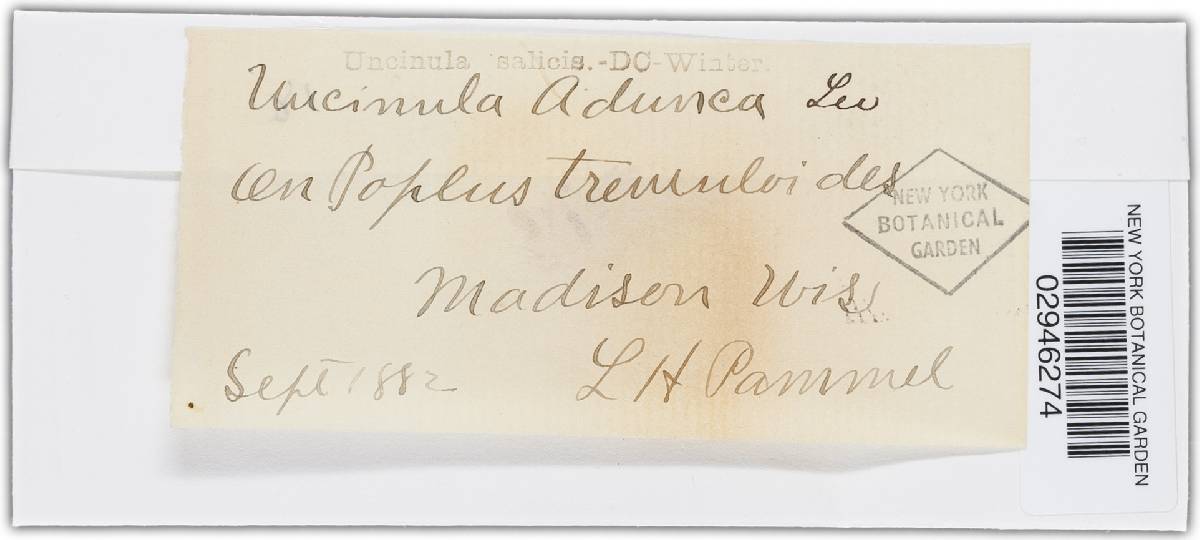 Uncinula salicis.-DC-Winter.
Uncinula Adunca Lev
On Poplus tremuloides
NEW YORK
BOTANICAL
GARDEN
Madison Wis
Sept 1882 L H Pammel
NEW YORK BOTANICAL GARDEN
02946274